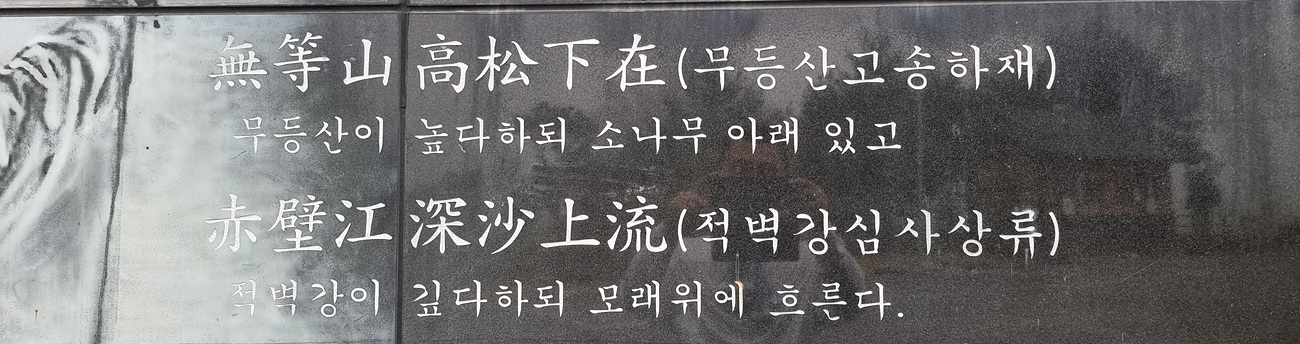 無等山高松下在(무등산고송하재)
무등산이 높다하되 소나무 아래 있고
赤壁江深沙上流(적벽강심사상류)
적벽강이 깊다하되 모래위에 흐른다.